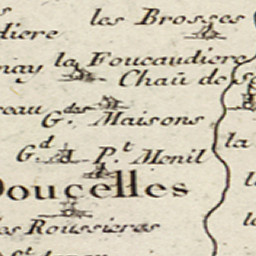 les Brosses
diere
la Foucaudiere
nay
Chaū de
G.des Maisons
eau
la
G.d P.t Menil
Doucelles
les Roussieres